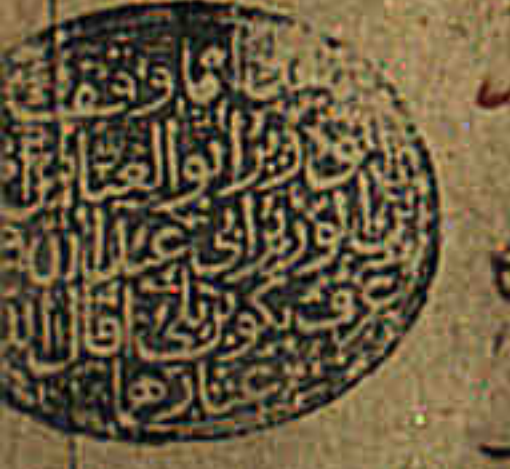 مما وقف
الوزير ابو العباس
بن الوزير ابي عبد الله
عرف بكوبريلي اقال الله
عثارهما